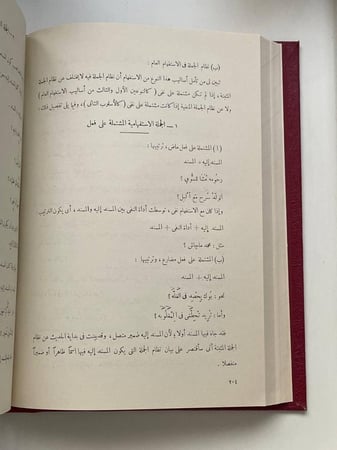 (ب) نظام الجملة فى الاستفهام العام :
تبين لى من تأمل أساليب هذا النوع من الاستفهام أن نظام الجملة فيه لا يختلف عن نظام الجملة
المثبتة ، إذا لم تكن مشتملة على نفى ( كالنوعين الأول والثالث من أساليب الاستفهام العام )
ولا عن نظام الجملة المنفية إذا كانت مشتملة على نفى ( كالأسلوب الثانى ) ، وفيما يلى تفصيل ذلك :
١ ــ الجملة الاستفهامية المشتملة على فعل
( أ ) المشتملة على فعل ماض ، ترتيبها :
المسند إليه + المسند
أبوك شرح مع
وإذا كان مع الاستفهام نفى ، توسطت أداة النفى بين المسند إليه والمسند ، أى يكون الترتيب
المسند إليه + أداة النفى + المسند
مثل : محمد ماجاش ؟
(ب) المشتملة على فعل مضارع ، وترتيبها :
المسند إليه + المسند
نحو :
( وأما :
فقد جاء فيها المسند أولا ؛ لأن المسند إليه ضمير متصل ، وقد بينت فى بداية الحديث عن نظام
الجملة المثبتة أنى سأقتصر على بيان نظام الجملة التى يكون المسند إليه فيها اسمًا ظاهرًا أو ضميرًا
منفصلا .
٢٠٤